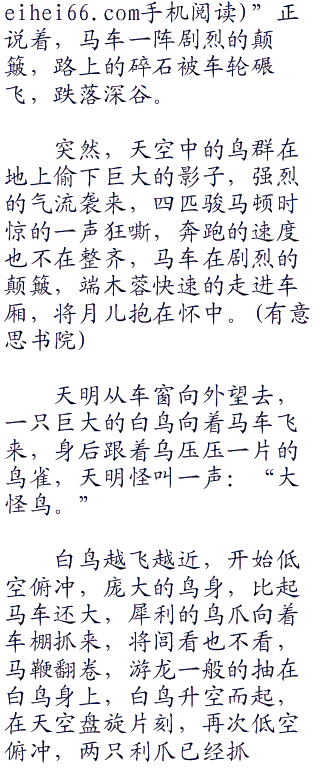 eihei66.com手机阅读)”正
说着，马车一阵剧烈的颠
簸，路上的碎石被车轮碾
飞，跌落深谷。
突然，天空中的鸟群在
地上偷下巨大的影子，强烈
的气流袭来，四匹骏马顿时
惊的一声狂嘶，奔跑的速度
也不在整齐，马车在剧烈的
颠簸，端木蓉快速的走进车
厢，将月儿抱在怀中。(有意
思书院)
天明从车窗向外望去，
一只巨大的白鸟向着马车飞
来，身后跟着乌压压一片的
鸟雀，天明怪叫一声：“大
怪鸟。”
白鸟越飞越近，开始低
空俯冲，庞大的鸟身，比起
马车还大，犀利的鸟爪向着
车棚抓来，将闾看也不看，
马鞭翻卷，游龙一般的抽在
白鸟身上，白鸟升空而起，
在天空盘旋片刻，再次低空
俯冲，两只利爪已经抓